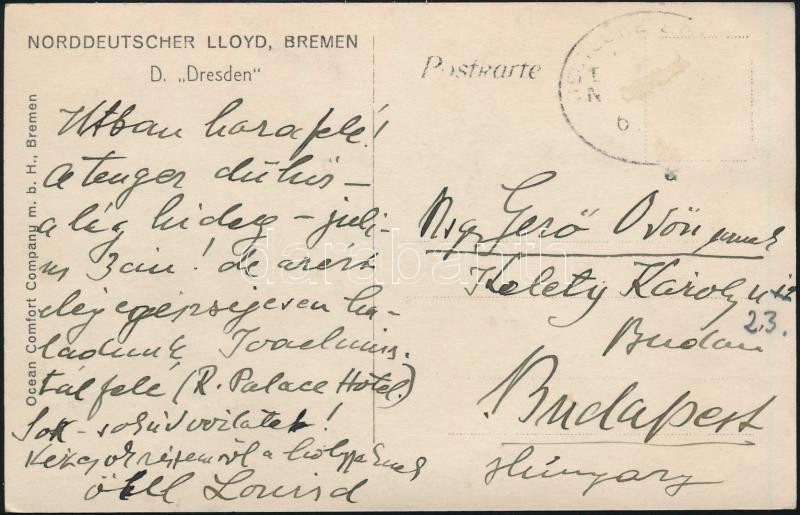 NORDDEUTSCHER LLOYD, BREMEN
D. „Dresden"
Ocean Comfort Company m. b. H., Bremen
Postkarte
6
Utban hazafelé!
A tenger dühös –
a lég hideg – juli-
us 3án! de azért
elég egészségesen ha-
ladunk
tól felé (R. Palace Hotel.)
Sok – sok üdvözlatok!
a
ölel
Gerő Ödön
Kelety Károly u
23.
Budan
Budapest
Hungary
darabanth